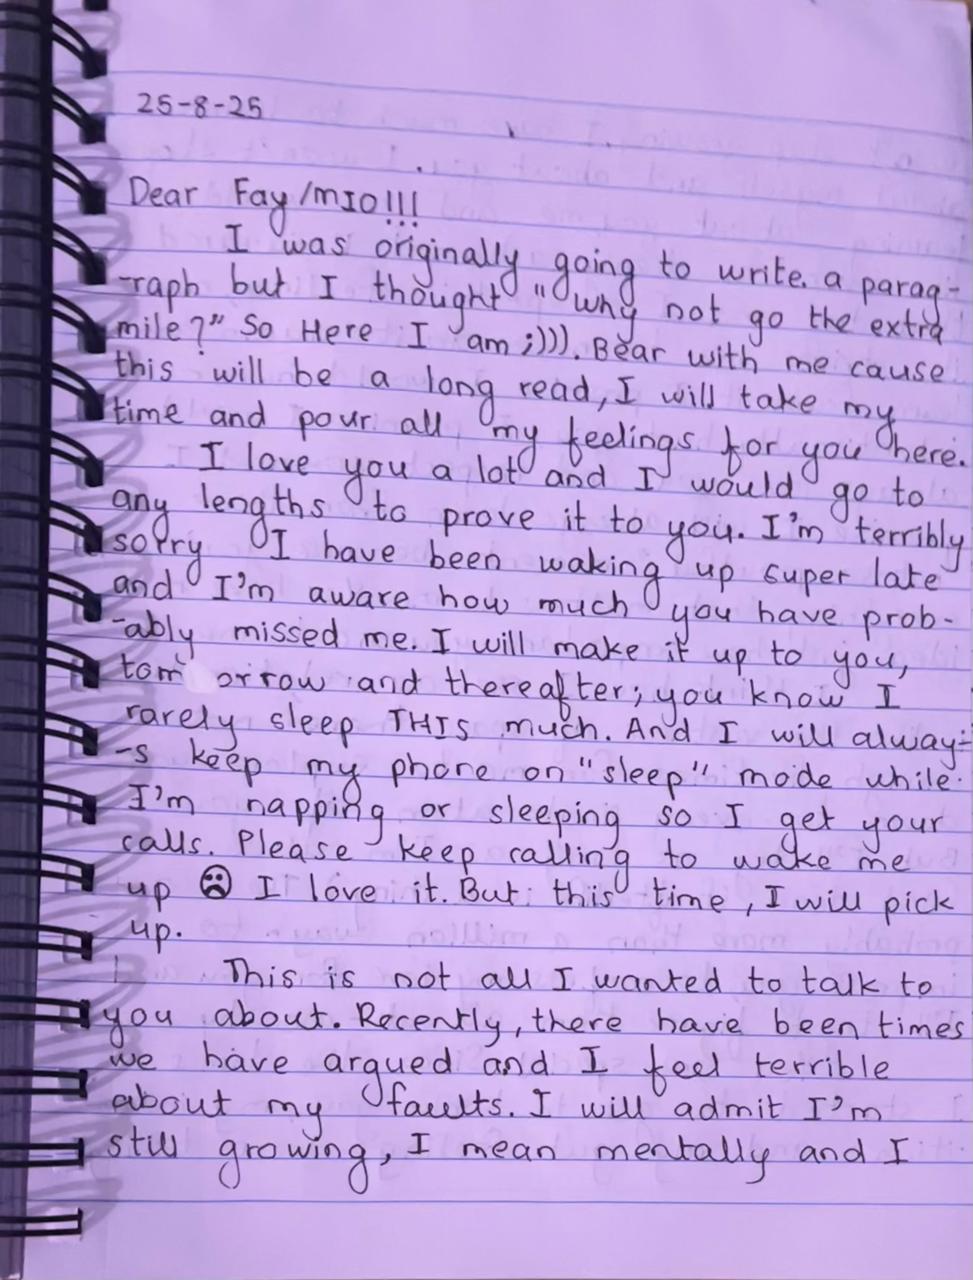 25-8-25
Dear Fay/MIO!!!
I was originally going to write a parag-
-raph but I thought "why not go the extra
mile?" So Here I am ;))). Bear with me cause
this will be a long read, I will take my
time and pour all my feelings for you here.
I love you a lot and I would go to
any lengths to prove it to you. I'm terribly
sorry I have been waking up super late
and I'm aware how much you have prob-
-ably missed me. I will make it up to you,
tom orrow and thereafter; you know I
rarely sleep THIS much. And I will alway-
-s keep my phone on "sleep" mode while
I'm napping or sleeping so I get your
calls. Please keep calling to wake me
up ☹ I love it. But this time, I will pick
up.
This is not all I wanted to talk to
you about. Recently, there have been times
we have argued and I feel terrible
about my faults. I will admit I'm
still growing, I mean mentally and I